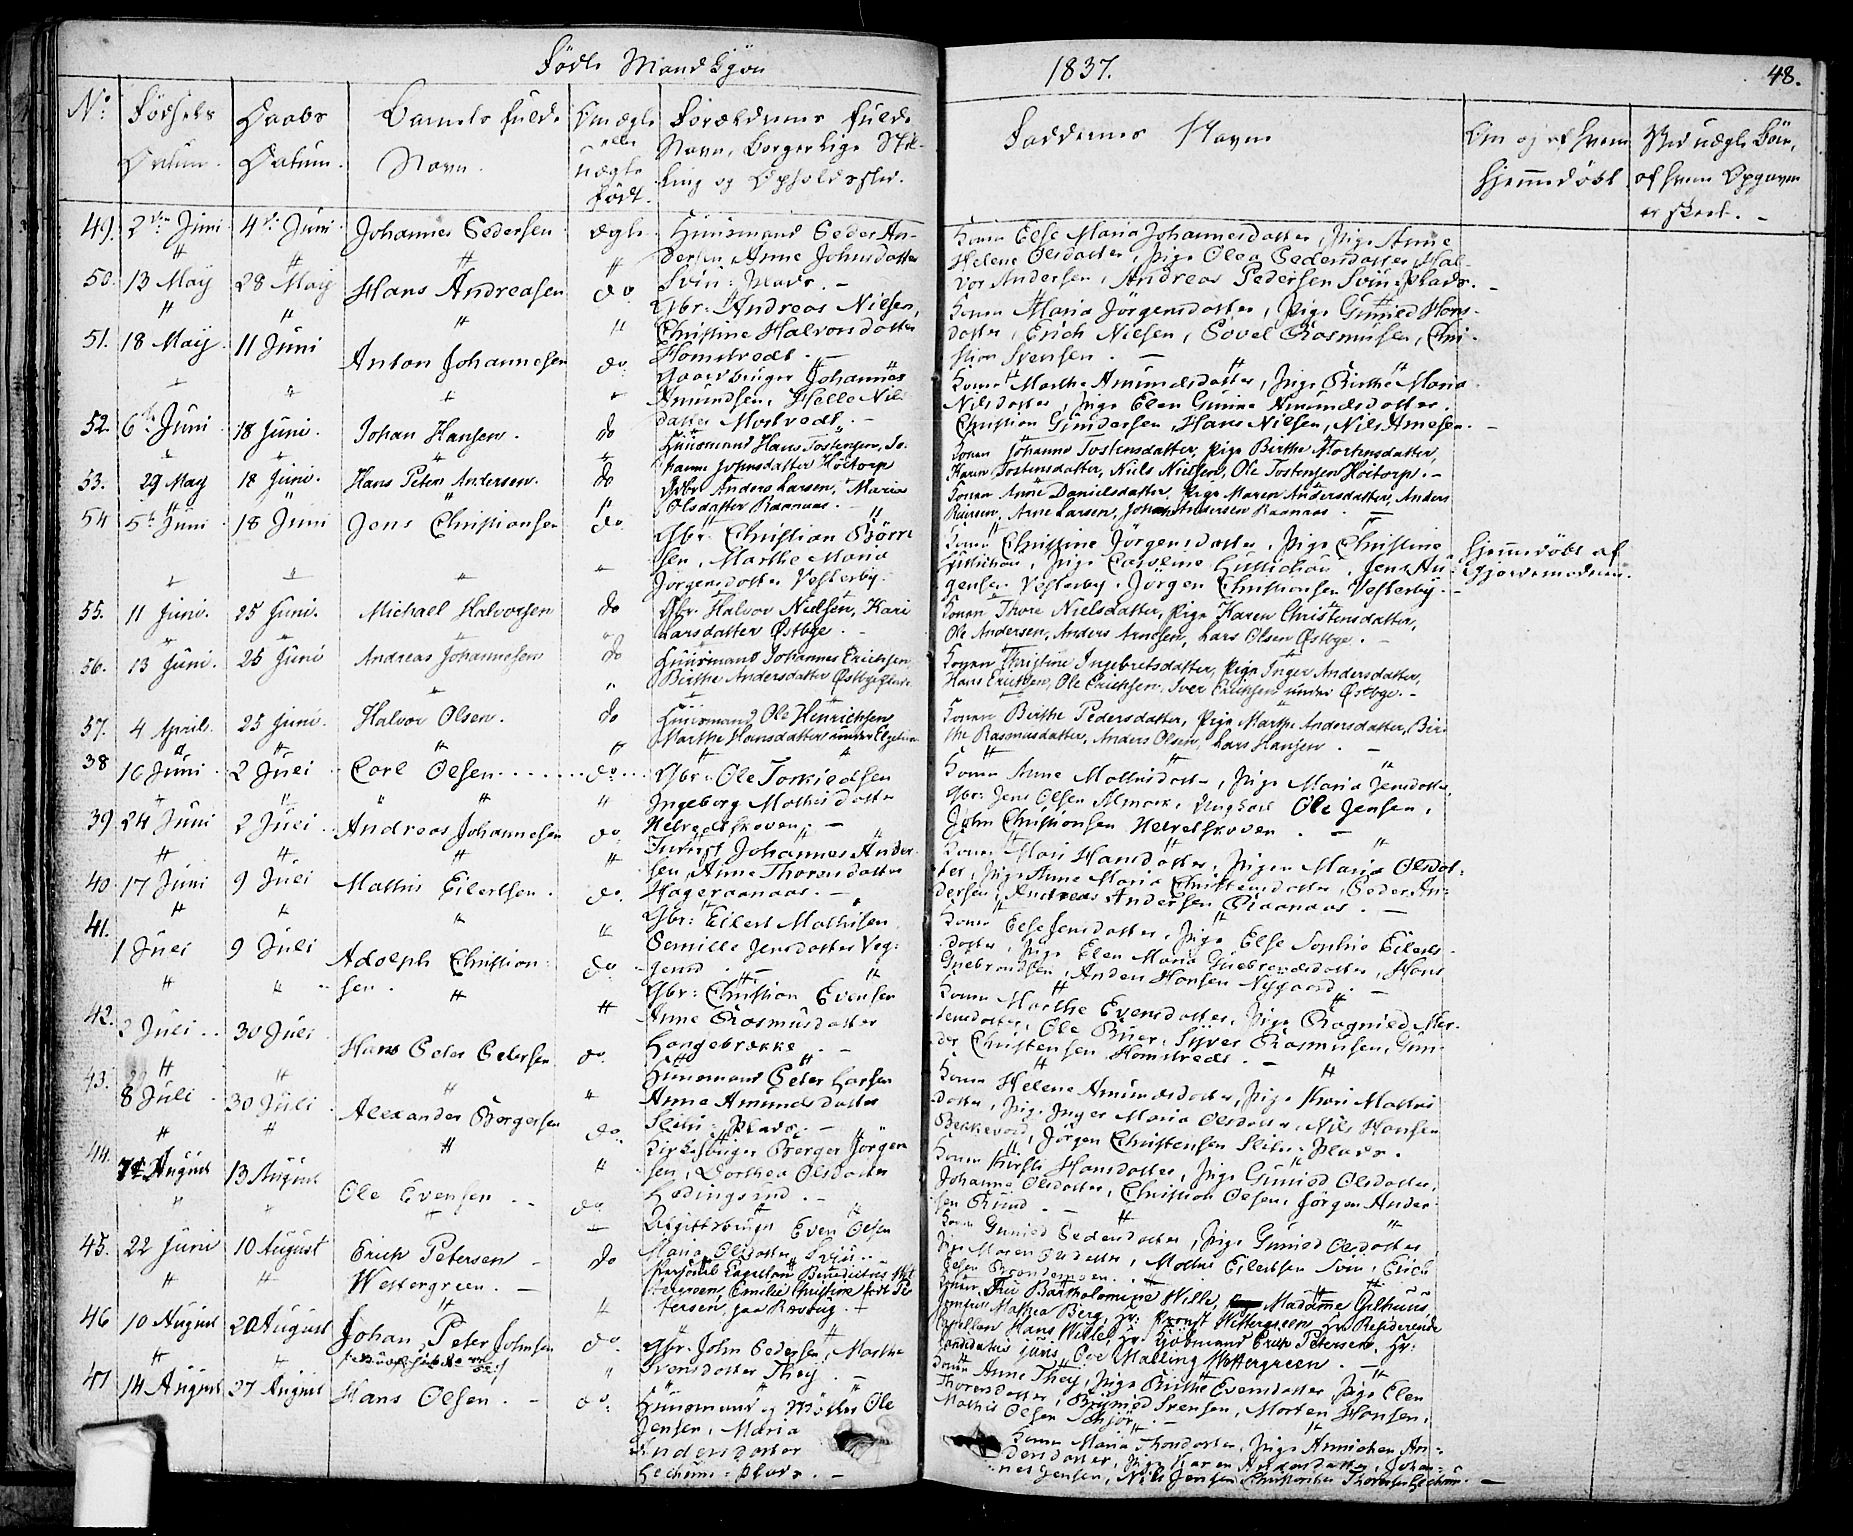 Fødte Mandkjøn
1837.
48.
No.
Fødsels Datum.
Daabs Datum.
Barnets fulde Navn.
Om ægte eller uægte født.
Forældrenes fulde Navn, borgerlige Stilling og Opholdssted.
Faddernes Navne
Om og af hvem hjemmedøbt.
Ved uægte Børn, af hvem Opgaven er skeet. -
49. 2den Juni 4de Juni Johannes Pedersen ægte Huusmand Peder An-
dersen, Anne Johnsdatter
Sviu-Plads. -
Konen Else Maria Johannesdatter, Pige Anne
Helene Olsdatter, Pige Olea Pedersdatter, Hal-
vor Andersen, Andreas Pedersen Sviu-Plads. -
50. 13 May 28 May Hans Andreasen do Gbr. Andreas Nielsen,
Christine Halvorsdatter
Homstvedt. -
Konen Maria Jörgensdatter, Pige Gunild Hans-
datter, Erich Nielsen, Rasmusen, Chri-
stian Svensen. -
51. 18 May 11 Juni Anton Johannesen do Gaardbruger Johannes
Amundsen, Helle Nils-
datter Mostvedt. -
Konen Marthe Amundsdatter, Pige Birthe Maria
Nilsdatter, Pige Elen Gurine Amundsdatter,
Christian Gundersen, Hans Nielsen, Nils Arnesen. -
52. 6te Juni 18 Juni. Johan Hansen. do Huusmand Hans Tostensen, Jo-
hanne Johnsdatter Høitorp
Konen Johanne Tostensdatter, Pige Birthe Mortensdatter,
Karen Tostensdatter, Niels Nielsen, Ole Tostensen Høitorp. -
53. 29 May 18 Juni. Hans Peter Andersen. do Gbr. Anders Larsen, Maria
Olsdatter Raanaas. -
Konen Anne Danielsdatter, Pige Maren Andersdatter, Anders
Arne Larsen, Johan Andersen Raanaas. -
54 5te Juni 18 Juni Jens Christiansen do. Gbr. Christian Börre-
sen, Marthe Maria
Jörgensdatter Vesterby.
Konen Christine Jörgensdatter, Pige Christine
Pige Caroline Jens An-
gensen Vesterby, Jörgen Christiansen Vesterby. -
Hjemmedøbt af
Gjordemoderen.
55. 11 Juni. 25 Juni. Michael Halvorsen do Gbr. Halvor Nielsen, Kari
Larsdatter Østbye. -
Konen Thore Nielsdatter, Pige Karen Christensdatter,
Ole Andersen, Anders Arnesen, Lars Olsen Østbye. -
56. 13 Juni. 25 Juni Andreas Johannesen do Huusmand Johannes Erichsen
Birthe Andersdatter Østbyeplads
Konen Christine Ingebretsdatter, Pige Inger Andersdatter,
Hans Erichsen, Ole Erichsen, Iver Erichsen under Østbye. -
57. 4 April. 25 Juni. Halvor Olsen. do Huusmand Ole Henrichsen
Marthe Hansdatter under
Konen Birthe Pedersdatter, Pige Marthe Andersdatter, Bir-
the Rasmusdatter, Anders Olsen, Lars Hansen. -
38 16 Juni 2 Juli Carl Olsen do Gbr. Ole Torkildsen
Ingeborg Mathisdatter
Helvedtskoven. -
Konen Anne Mathisdatter, Pige Maria Jensdatter,
Gbr: Jens Olsen Ungkarl Ole Jensen,
John Christiansen Helvetskoven. -
39. 24 Juni 2 Juli Andreas Johannesen do. Johannes Ander-
sen, Anne Thorersdatter
Hageraanaas. -
Konen Mari Hansdatter, Pigen Maria Olsdat-
ter, Pige Anne Maria Christensdatter, Peder An-
dersen, Andreas Andersen Raanaas. -
40. 17 Juni 9 Juli Mathis Eilertsen. do. Gbr. Eilert Mathisen
Semille Jensdatter
Konen Else Jensdatter, Pige Else Sophie Eilerts-
datter, Pige Elen Maria Gulbrandsdatter, Hans
Gulbrandsen, Anders Hansen Nygaard. -
41. 1 Juli 9 Juli Adolph Christian-
sen. do. Gbr: Christian Evensen
Anne Rasmusdatter
Langebrække. -
Konen Marthe Evensdatter, Pige Ragnild
Ole Rasmusen, Gun-
der Christensen Homstvedt. -
42. 2 Juli 30 Juli Hans Peter Petersen do. Huusmand Peter Larsen
Anne Amundsdatter
Slitu-Plads. -
Konen Helene Amundsdatter, Pige Kari Mathis-
datter, Pige Inger Maria Olsdatter, Nils Hansen
Bekkevold, Jörgen Christensen Slitu-Plads.
43. 8 Juli 30 Juli Alexander Borgersen do. Borger Jörgen-
sen, Dorthea Olsdatter
Konen Kirsti Hansdatter, Pige Gunild Olsdatter,
Johanne Olsdatter, Christian Olsen, Jörgen Ander-
sen Ruud. -
44. 7de August 13 August Ole Evensen do Even Olsen
Maria Olsdatter Sviu. -
Konen Gunild Pedersdatter, Pige Gunild Olsdatter,
Pige Maren datter, Mathis Eilertsen Sviu, Erich
Olsen
45. 22 Juni 10 August Erich Petersen
Westergreen. - do Personel Capellan Benedictus Wes-
tergreen, Emilie Christine født Pe-
tersen, paa
Konen Bartholomine Wille, Madame Gilhuus
Jomfrue Mathea Berg, Hr. Provst Westergreen, Hr. Residerende
Capellan Hans Wille, Hr. Kjøbmand Erich Petersen, Hr:
Candidatus juris, Ove Malling Westergreen. -
46 10 August 20 August Johan Peter Johnsen do. Gbr. John Pedersen, Marthe
Svensdatter They. -
Konen Anne They, Pige Birthe Evensdatter, Pige Elen
Thorersdatter, Svensen, Morten Hansen,
Mathis Olsen
47 14 August 27 August Hans Olsen. - do. Huusmand og Møller Ole
Jensen, Maria
Andersdatter
Lechum-Plads. -
Konen Maria datter, Pige Annichen An-
dersdatter, Pige Karen Andersdatter, Johan-
nes Jensen, Nils Jensen, Thoresen Lechum. -